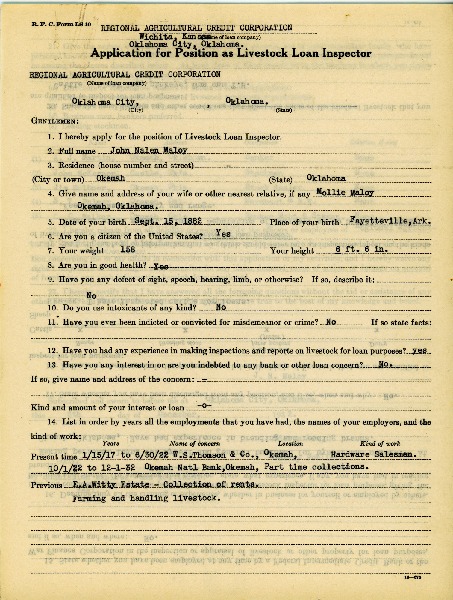 R. F. C. Form LS 10
REGIONAL AGRICULTURAL CREDIT CORPORATION
Wichita, Kansas (Name of loan company)
Oklahoma City, Oklahoma.
Application for Position as Livestock Loan Inspector
REGIONAL AGRICULTURAL CREDIT CORPORATION
(Name of loan company)
Oklahoma City, , Oklahoma.
(City) (State)
GENTLEMEN:
1. I hereby apply for the position of Livestock Loan Inspector
2. Full name John Nalen Maloy
3. Residence (house number and street)
(City or town) Okemah (State) Oklahoma
4. Give name and address of your wife or other nearest relative, if any Mollie Maloy
Okemah, Oklahoma.
5. Date of your birth Sept. 15, 1882 Place of your birth Fayetteville, Ark.
6. Are you a citizen of the United States? Yes
7. Your weight 158 Your height 6 ft. 6 in.
8. Are you in good health? Yes
9. Have you any defect of sight, speech, hearing, limb, or otherwise? If so, describe it:
No
10. Do you use intoxicants of any kind? No
11. Have you ever been indicted or convicted for misdemeanor or crime? No If so state facts:
12. Have you had any experience in making inspections and reports on livestock for loan purposes? yes
13. Have you any interest in or are you indebted to any bank or other loan concern? No.
If so, give name and address of the concern: -
Kind and amount of your interest or loan -o-
14. List in order by years all the employments that you have had, the names of your employers, and the
kind of work:
Years Name of concern Location Kind of work
Present time 1/15/17 to 6/30/22 W.S.Thomson & Co., Okemah, Hardware Salesman.
10/1/22 to 12-1-32 Okemah Natl Bank, Okemah, Part time collections.
Previous E.A.Witty Estate - Collection of rents.
Farming and handling livestock.